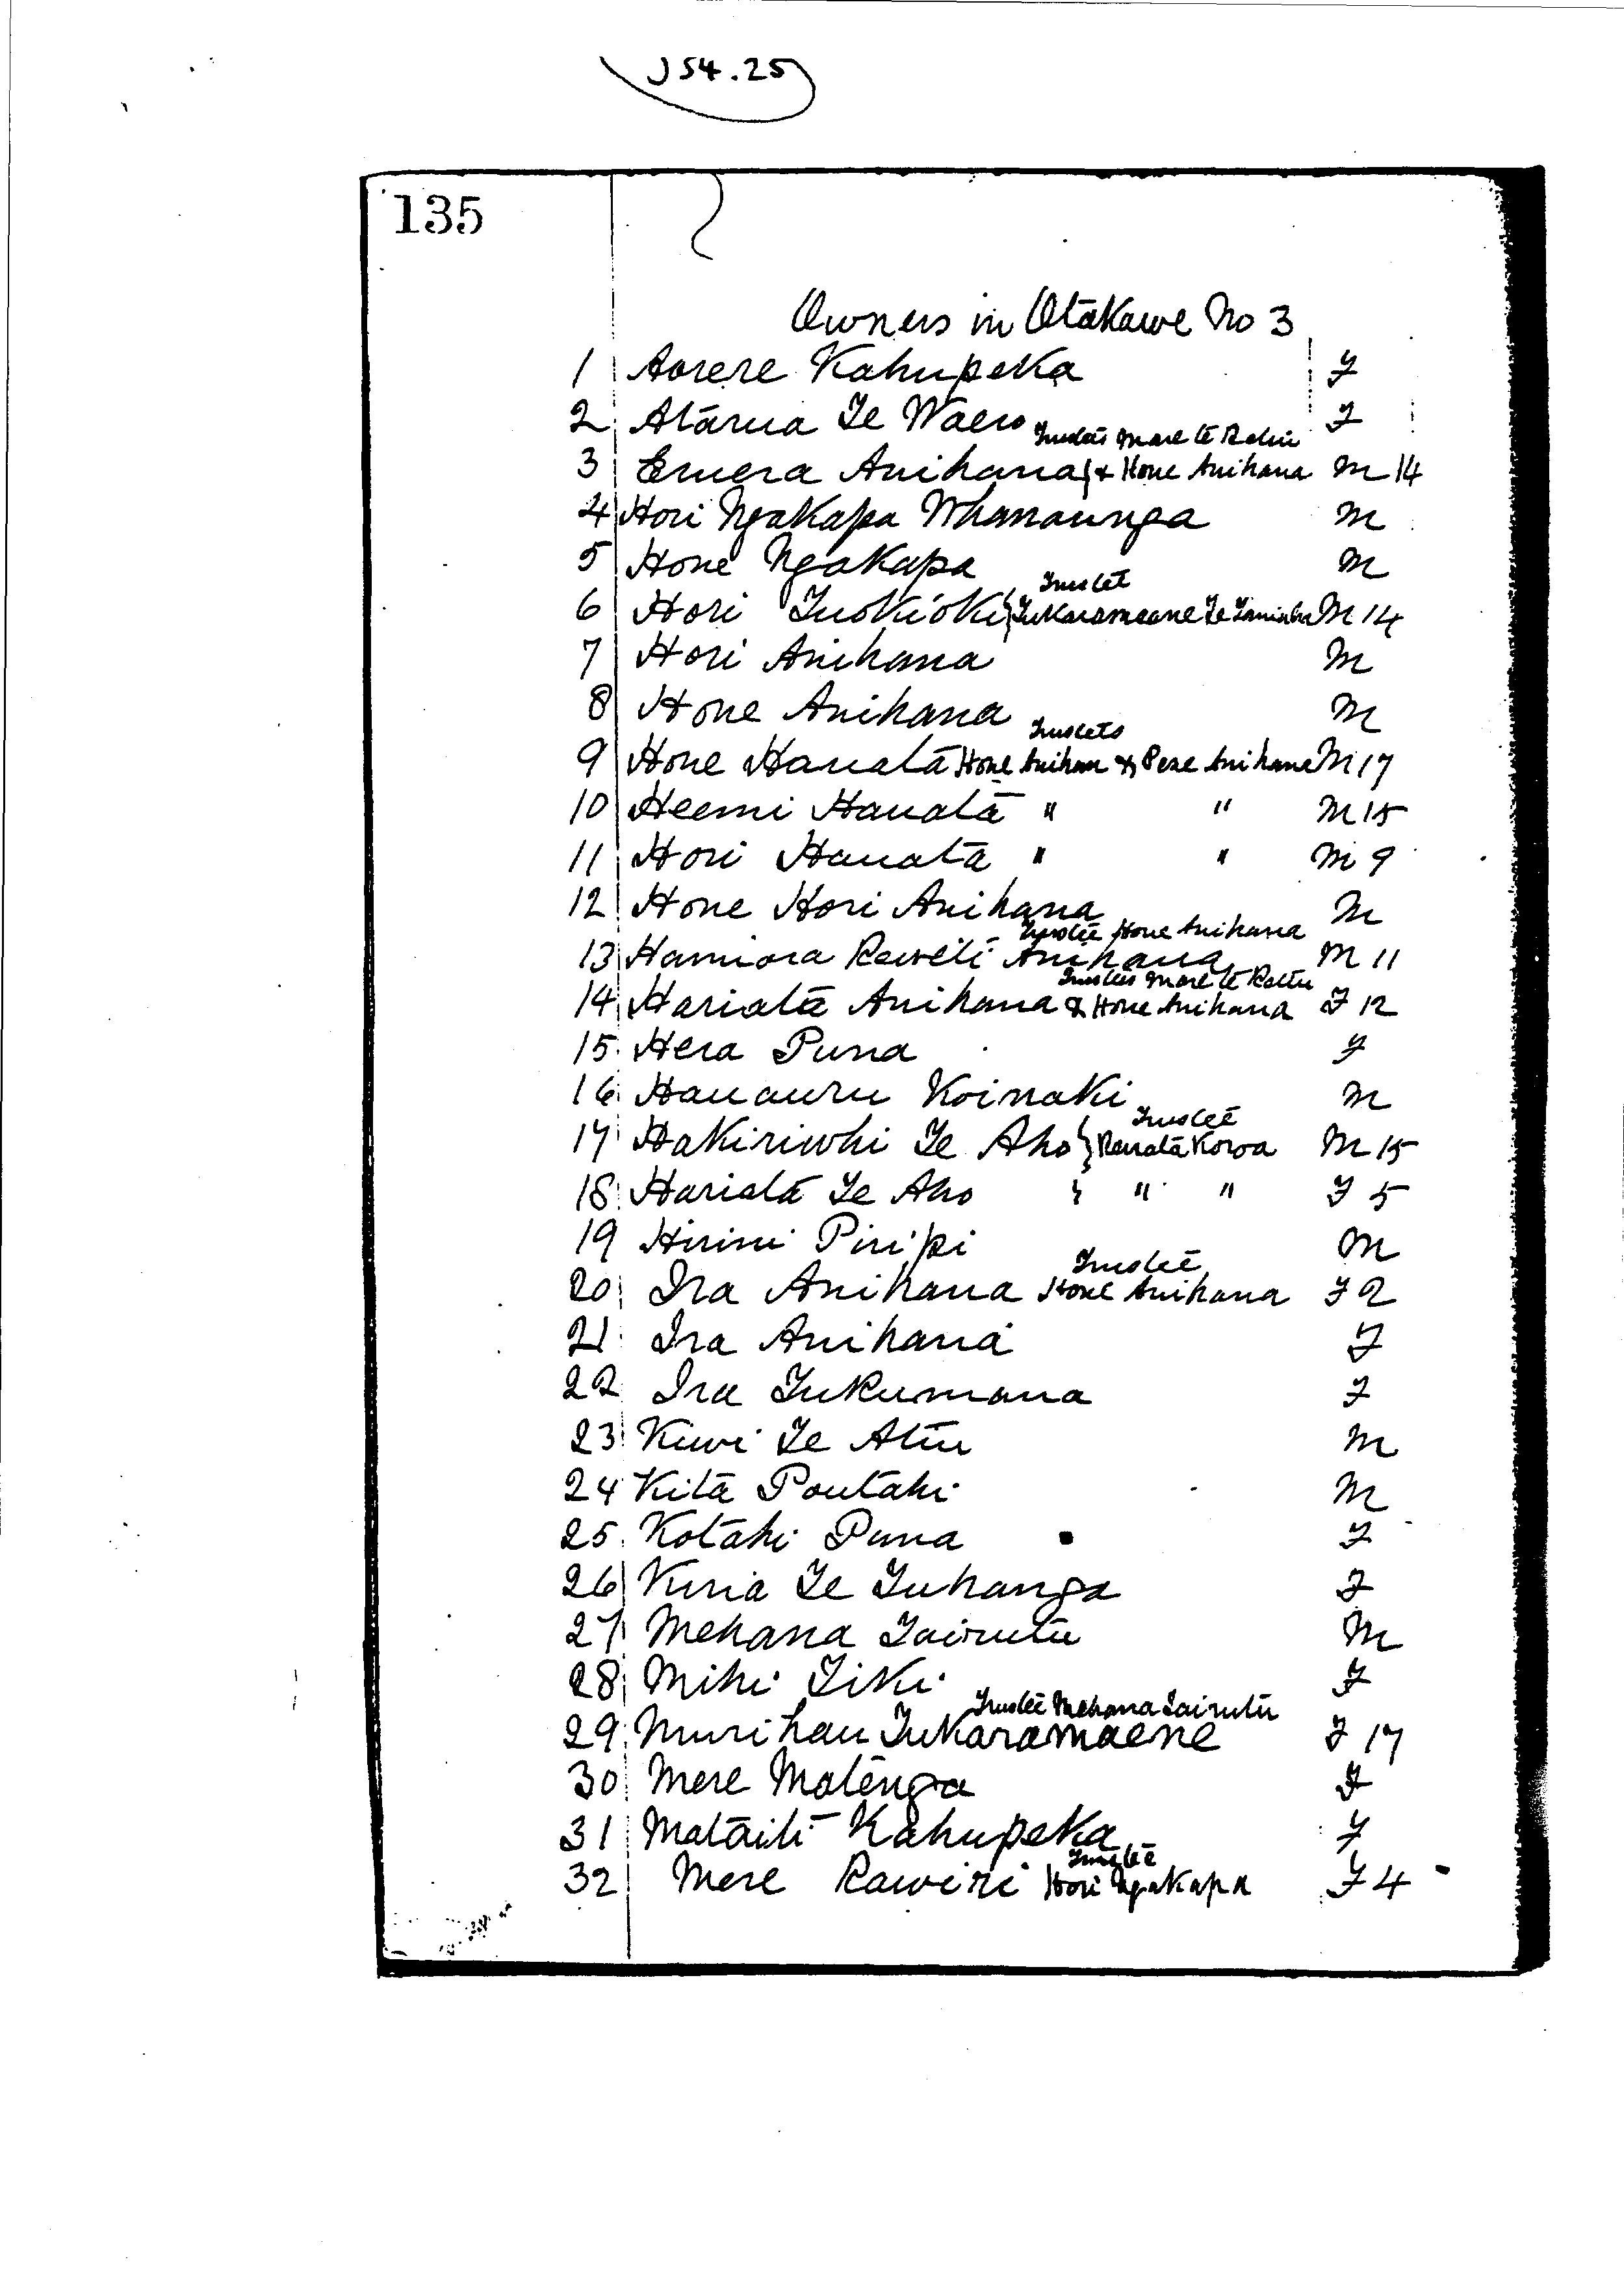 J54.25
135
Owners in Otakawe No 3
1 Aorere Kahupeka F
2 Atarua Te Waero F
Trustees Mare te
3 Emera Anihana & Hone Anihana M 14
4 Hori Ngakapa Whanaunga M
5 Hone Ngakapa M
Trustee
6 Hori Tuokioki Tukaramaene Te Taniwha M 14
7 Hori Anihana M
8 Hone Anihana M
Trustees
9 Hone Hauata Hone Anihana & Pene Anihana M 17
10 Heemi Hauata " " M 15
11 Hori Hauata " " M 9
12 Hone Hori Anihana M
Trustee Hone Anihana
13 Hamiora Reweti Anihana M 11
Trustees Mare te
14 Hariata Anihana & Hone Anihana F 12
15 Hera Puna F
16 Hauauru Koinaki M
Trustee
17 Hakiriwhi Te Aho Renata Koroa M 15
18 Hariata Te Aho " " F 5
19 Hirini Piripi M
Trustee
20 Ira Anihana Hone Anihana F 2
21 Ira Anihana F
22 Ira Tukumana F
23 Kiwi Te Atiu M
24 Kita Poutahi M
25 Kotahi Puna F
26 Kuria Te Tuhanga F
27 Mehana Tairutu M
28 Mihi Tiki F
Trustee Mehana Tairutu
29 Murihau Tukaramaene F 17
30 Mere Matenga F
31 Mataiti Kahupeka F
Trustee
32 Mere Rawiri Hori Ngakapa F 4